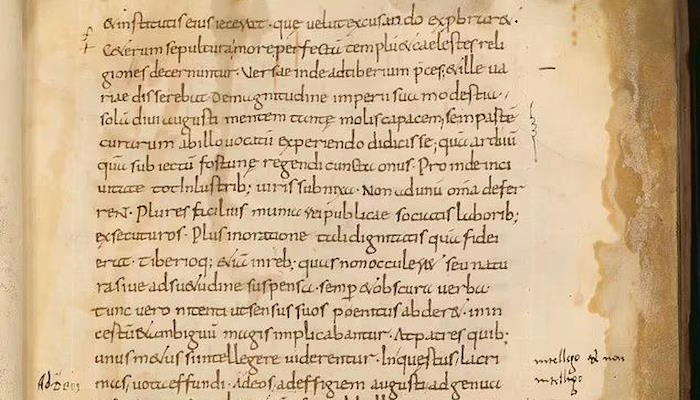 & institutis eius iecerat· que velut excusando exprobrar&·
Ceterum sepultura more perfecta templũ & caelestes reli
giones decernuntur· Versae inde ad tiberium p̄ces· & ille va
riae disserebat· De magnitudine imperii sua modestia·
solā divi augusti mentem tantę molis capacem· se in partē
curarum ab illo vocatū experiendo didicisse· quā arduū
quā subiectū fortunę regendi cuncta onus· Proinde in ci
vitate tot inlustrib; viris subnixa· Non ad unū om̃a defer
reNt· Plures facilius munia rei publicae sociatis laborib;
exsecuturos· Plus in oratione tali dignitatis quā fidei
erat· tiberioq; &iā in reb; quas non occuler&· seu natu
ra sive adsuetudine suspensa· semp̄ & obscura verba·
tunc vero nitenti ut sensus suos poenitus abder&· in in
certū & ambiguū magis implicabantur· At patres quib;
unus metus si intellegere viderentur· In questus· lacri
mas, vota effundi· Ad eos, ad effigiem augusti, ad genua
Ad Deos
intelligo & non
intelligo